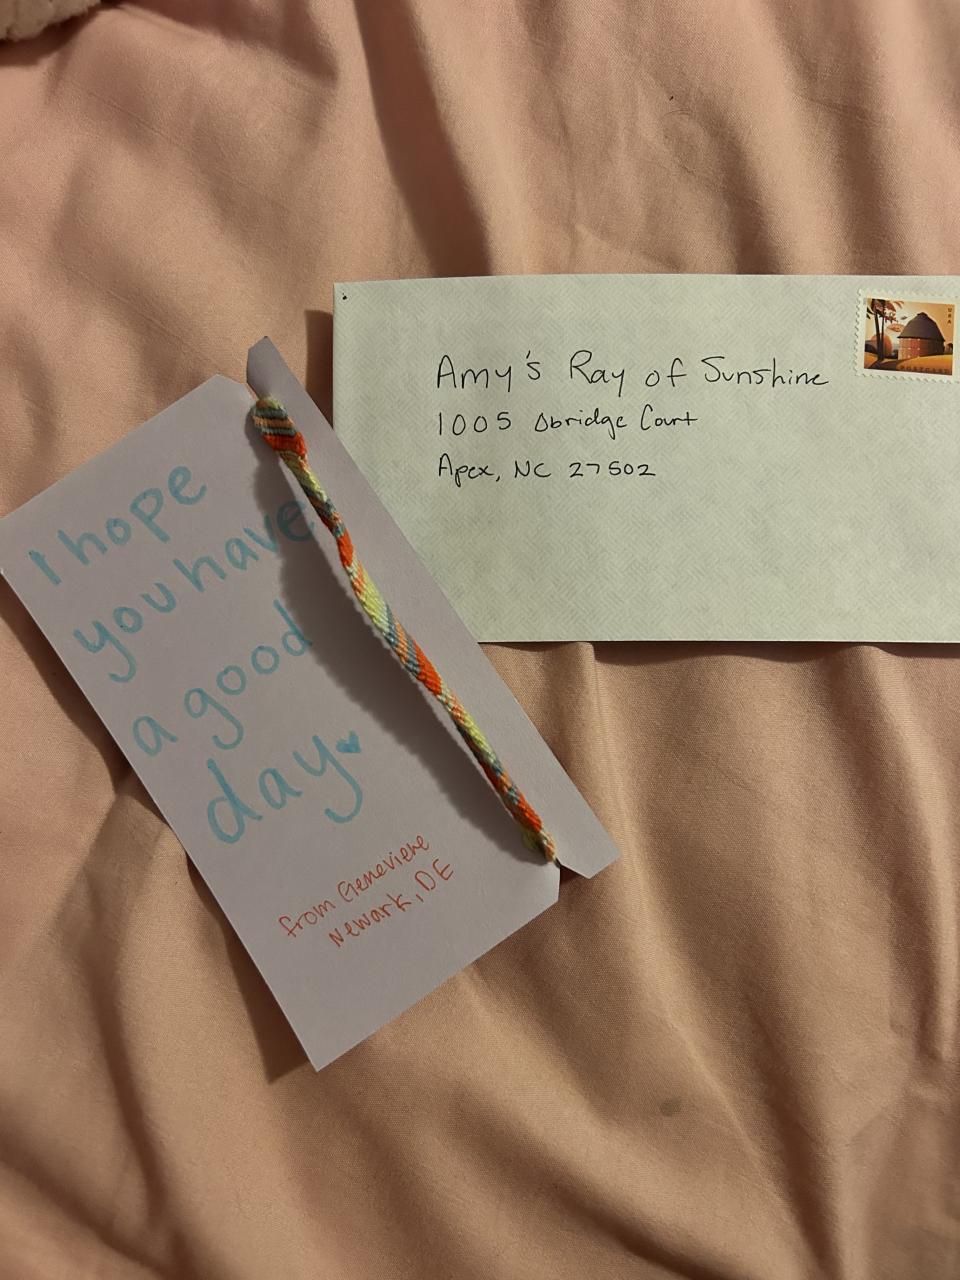 Amy's Ray of Sunshine
1005 Obridge Court
Apex, NC 27502
USA
POSTCARD
I hope
you have
a good
day
from Genevieve
Newark, DE